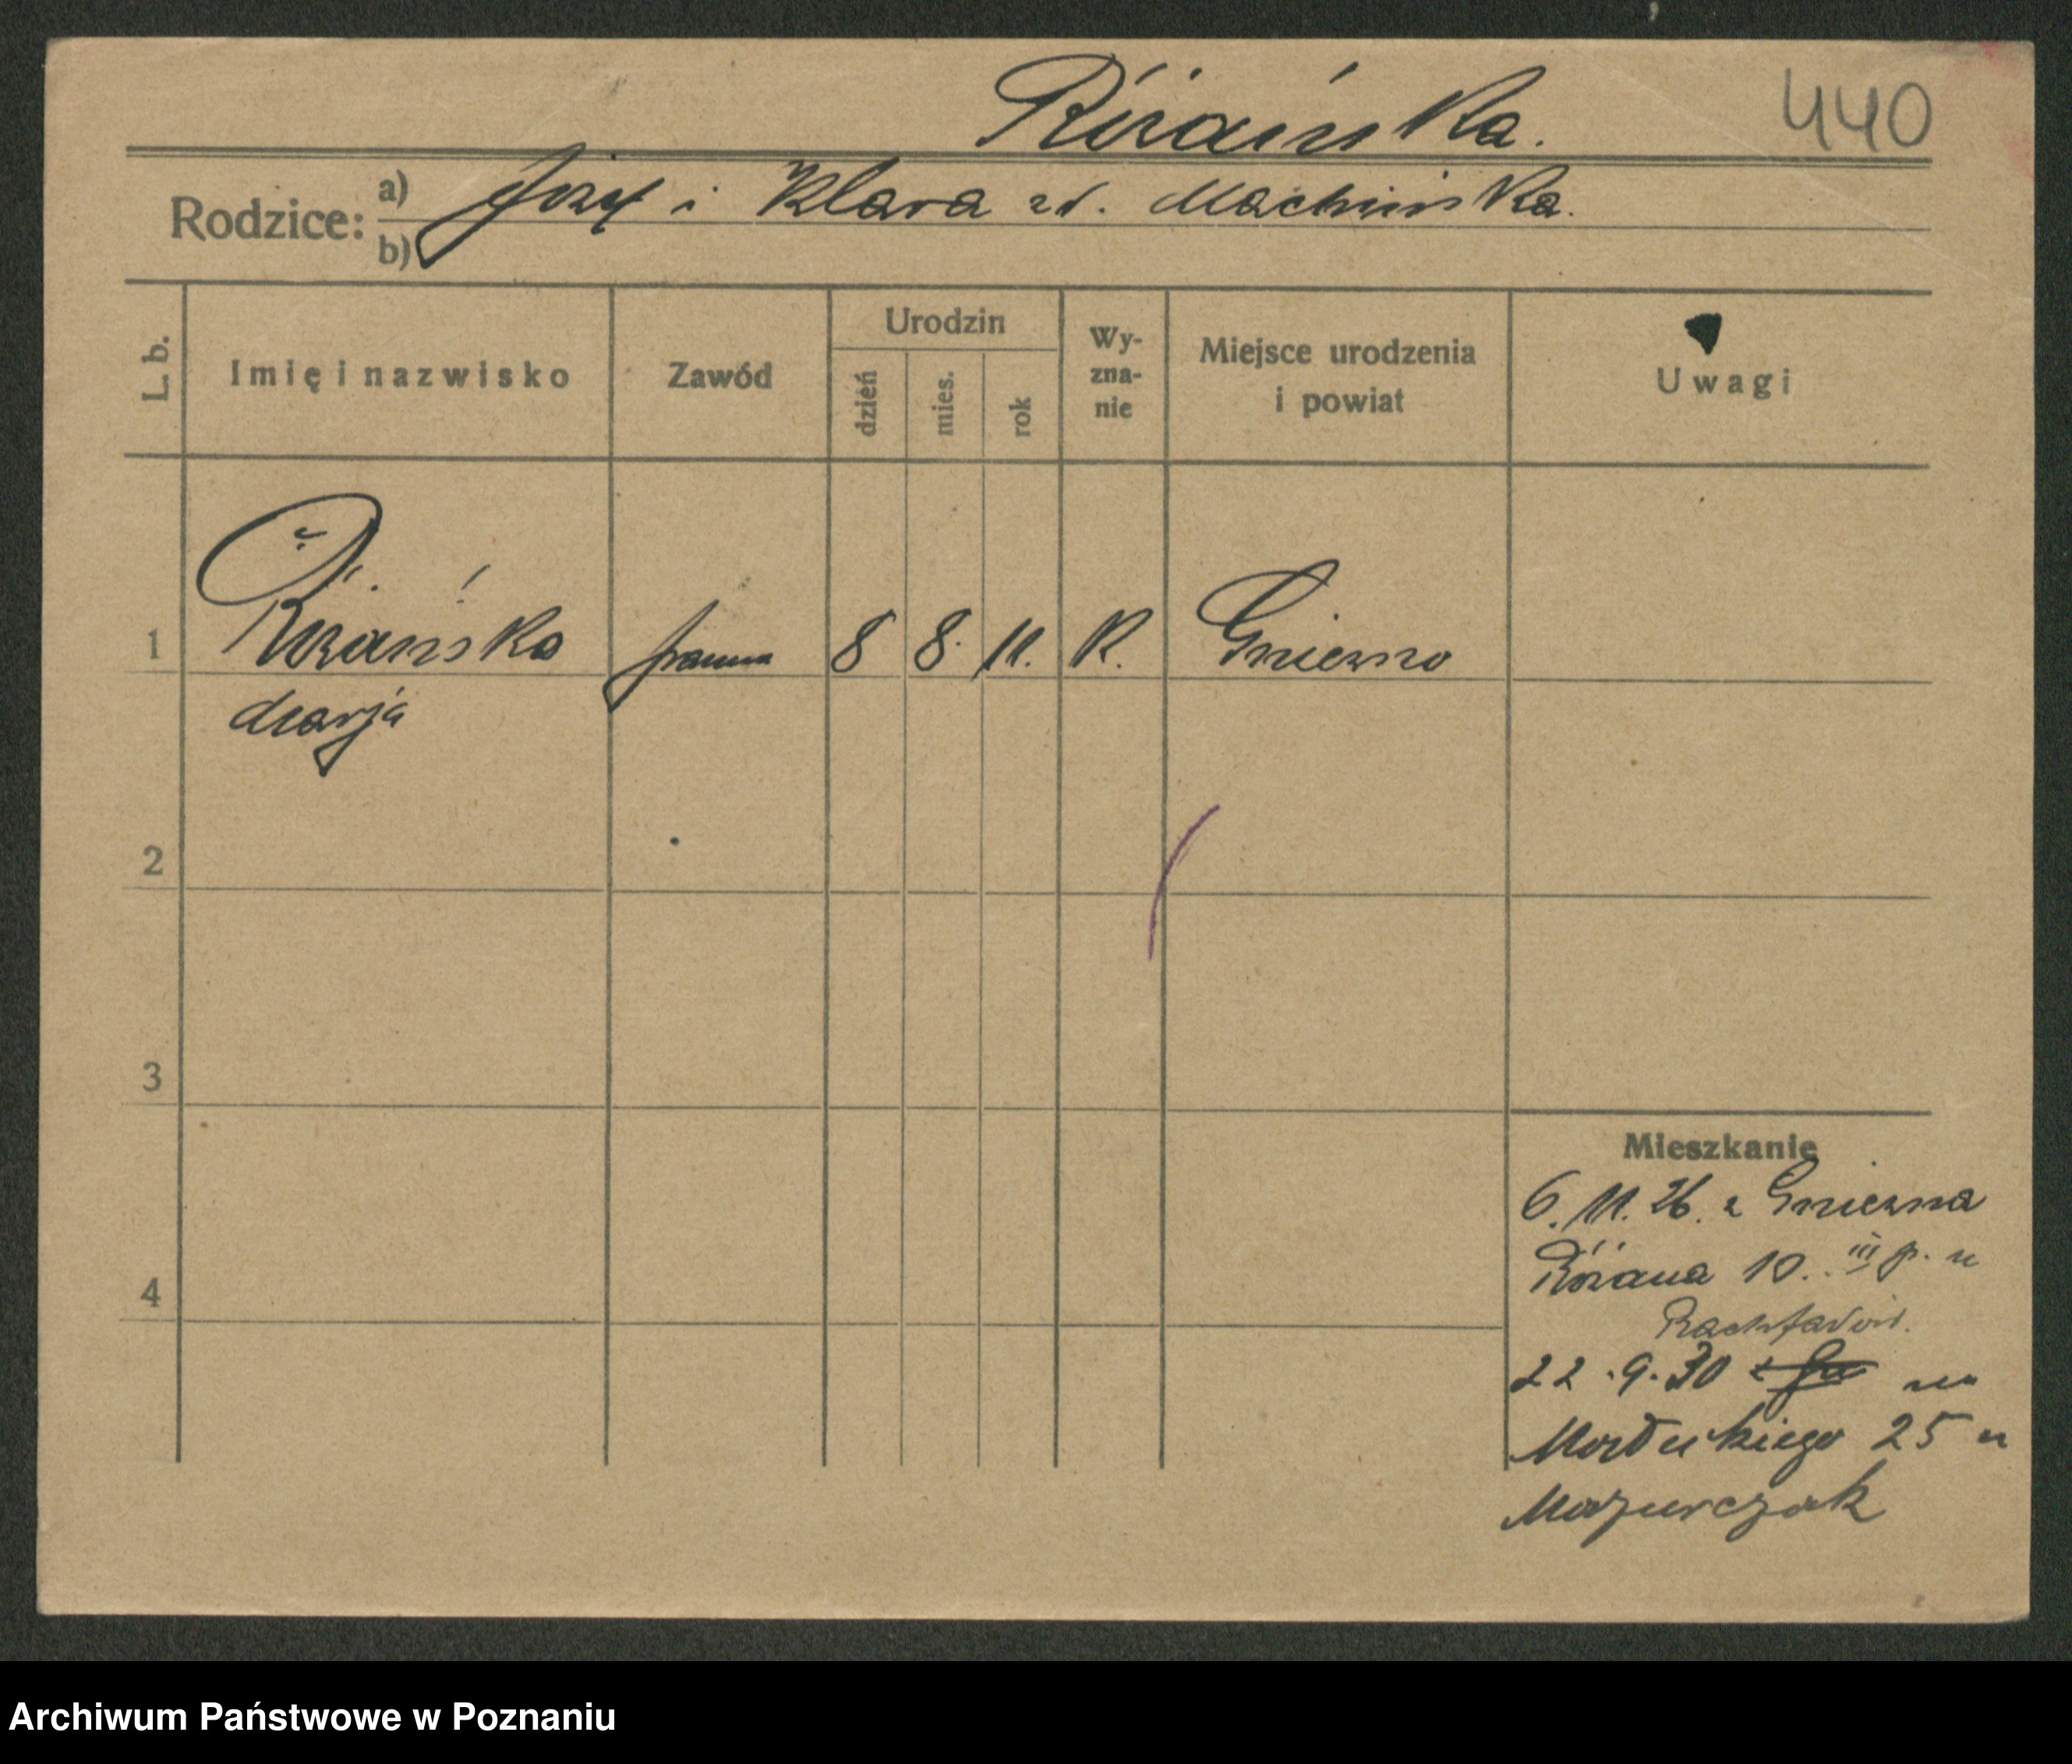 Różańska.
440
Rodzice:
a) Józef i Klara zd. Machińska.
b)
L. b.
Imię i nazwisko
Zawód
Urodzin
dzień
mies.
rok
Wy-
zna-
nie
Miejsce urodzenia
i powiat
Uwagi
1
Różańska
panna
8
8.
11.
K.
Gniezno
Marja
2
3
4
Mieszkanie
6.11.26. z Gniezna
Różana 10. III p. u
22.9.30 na
25 u
Mazurczak
Archiwum Państwowe w Poznaniu